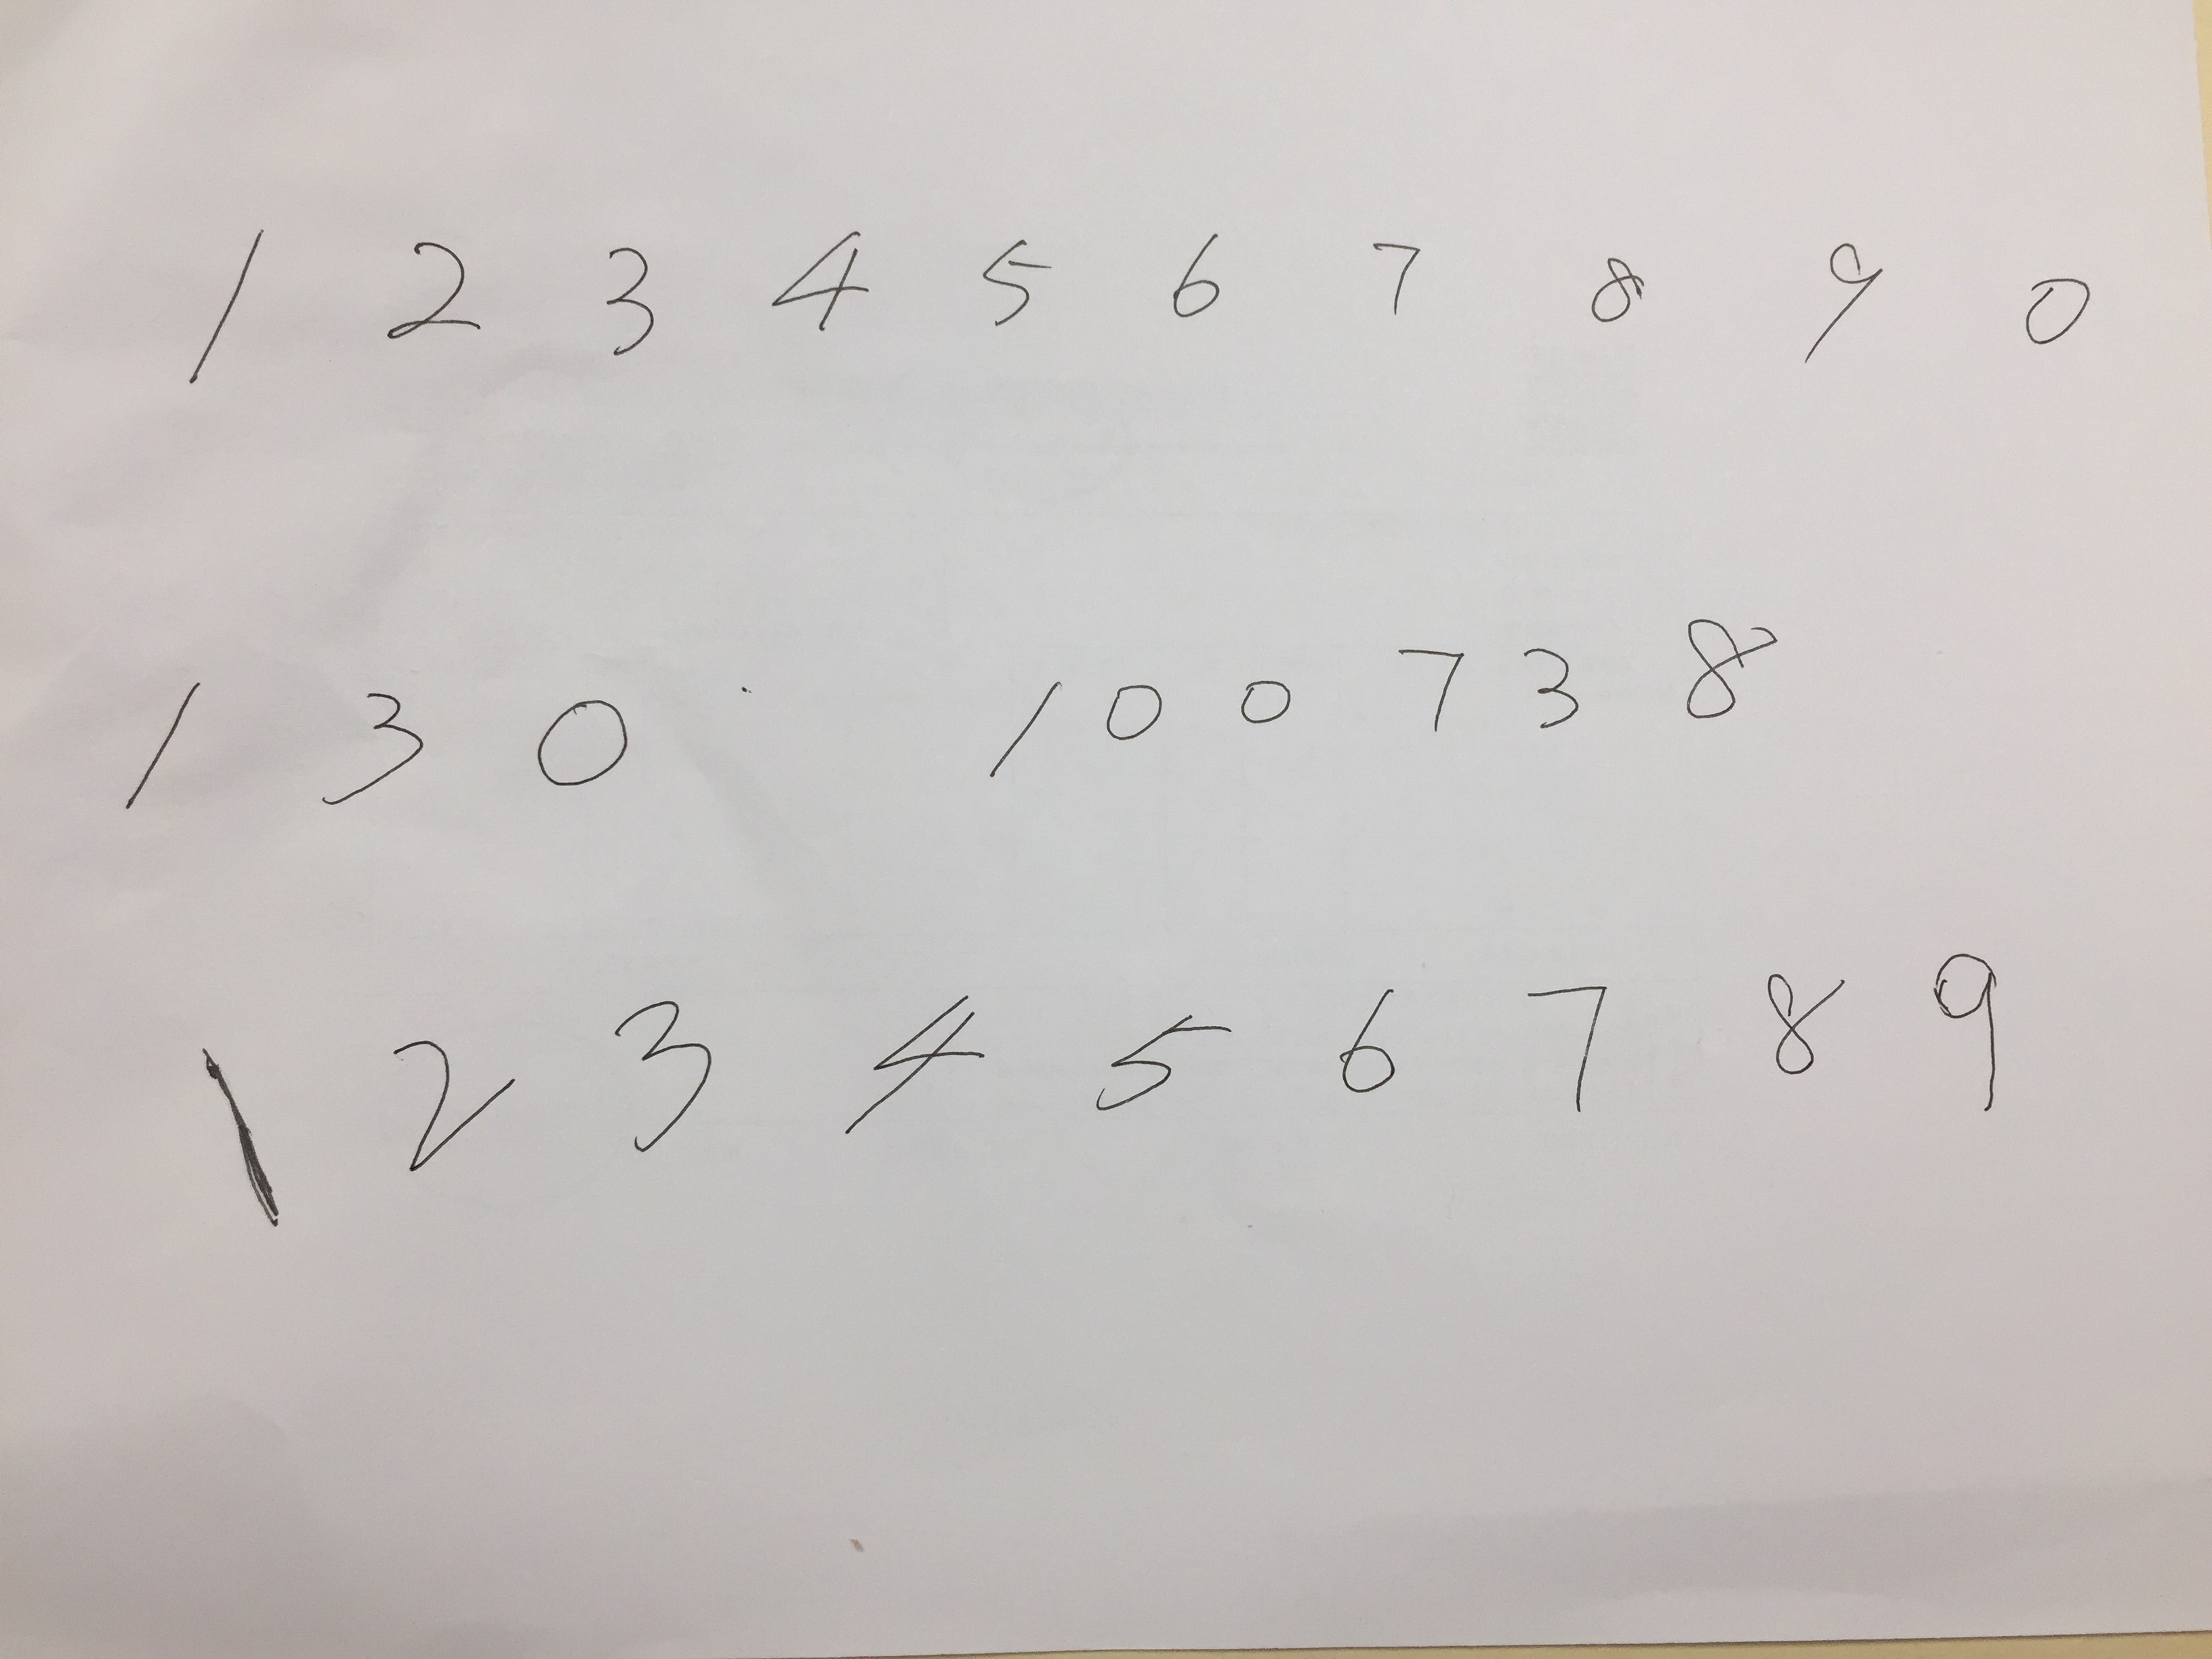 1 2 3 4 5 6 7 8 9 0
1 3 0 1 0 0 7 3 8
1 2 3 4 5 6 7 8 9